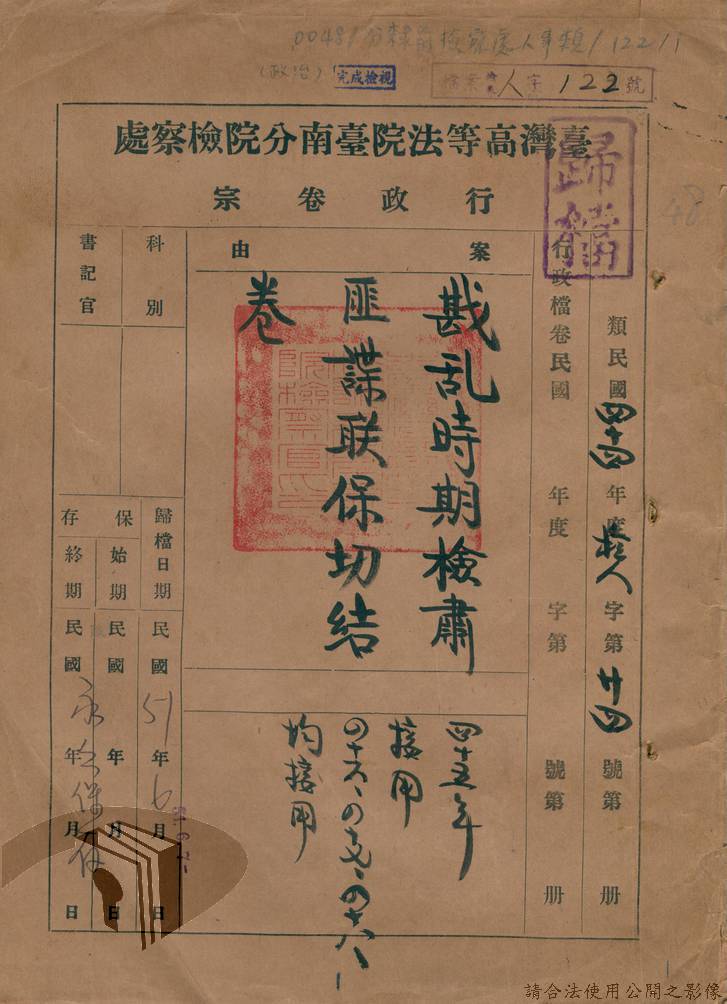 0048/分本前檢察處人事類/122/1
(政治)
完成檢視
人字122號
歸檔
臺灣高等法院臺南分院檢察處
行政卷宗
類民國四十四年度檢人字第廿四號第 册
行政檔卷民國 年度 字第 號第 册
案由
戡乱時期檢肅
匪諜联保切結
卷
四十五年
接用
四十六、四十七、四十八
均接用
科別
書記官
歸檔日期民國51年6月 日
保存
始期民國 年 月 日
終期民國 年 月 日
永久保存
48
請合法使用公開之影像